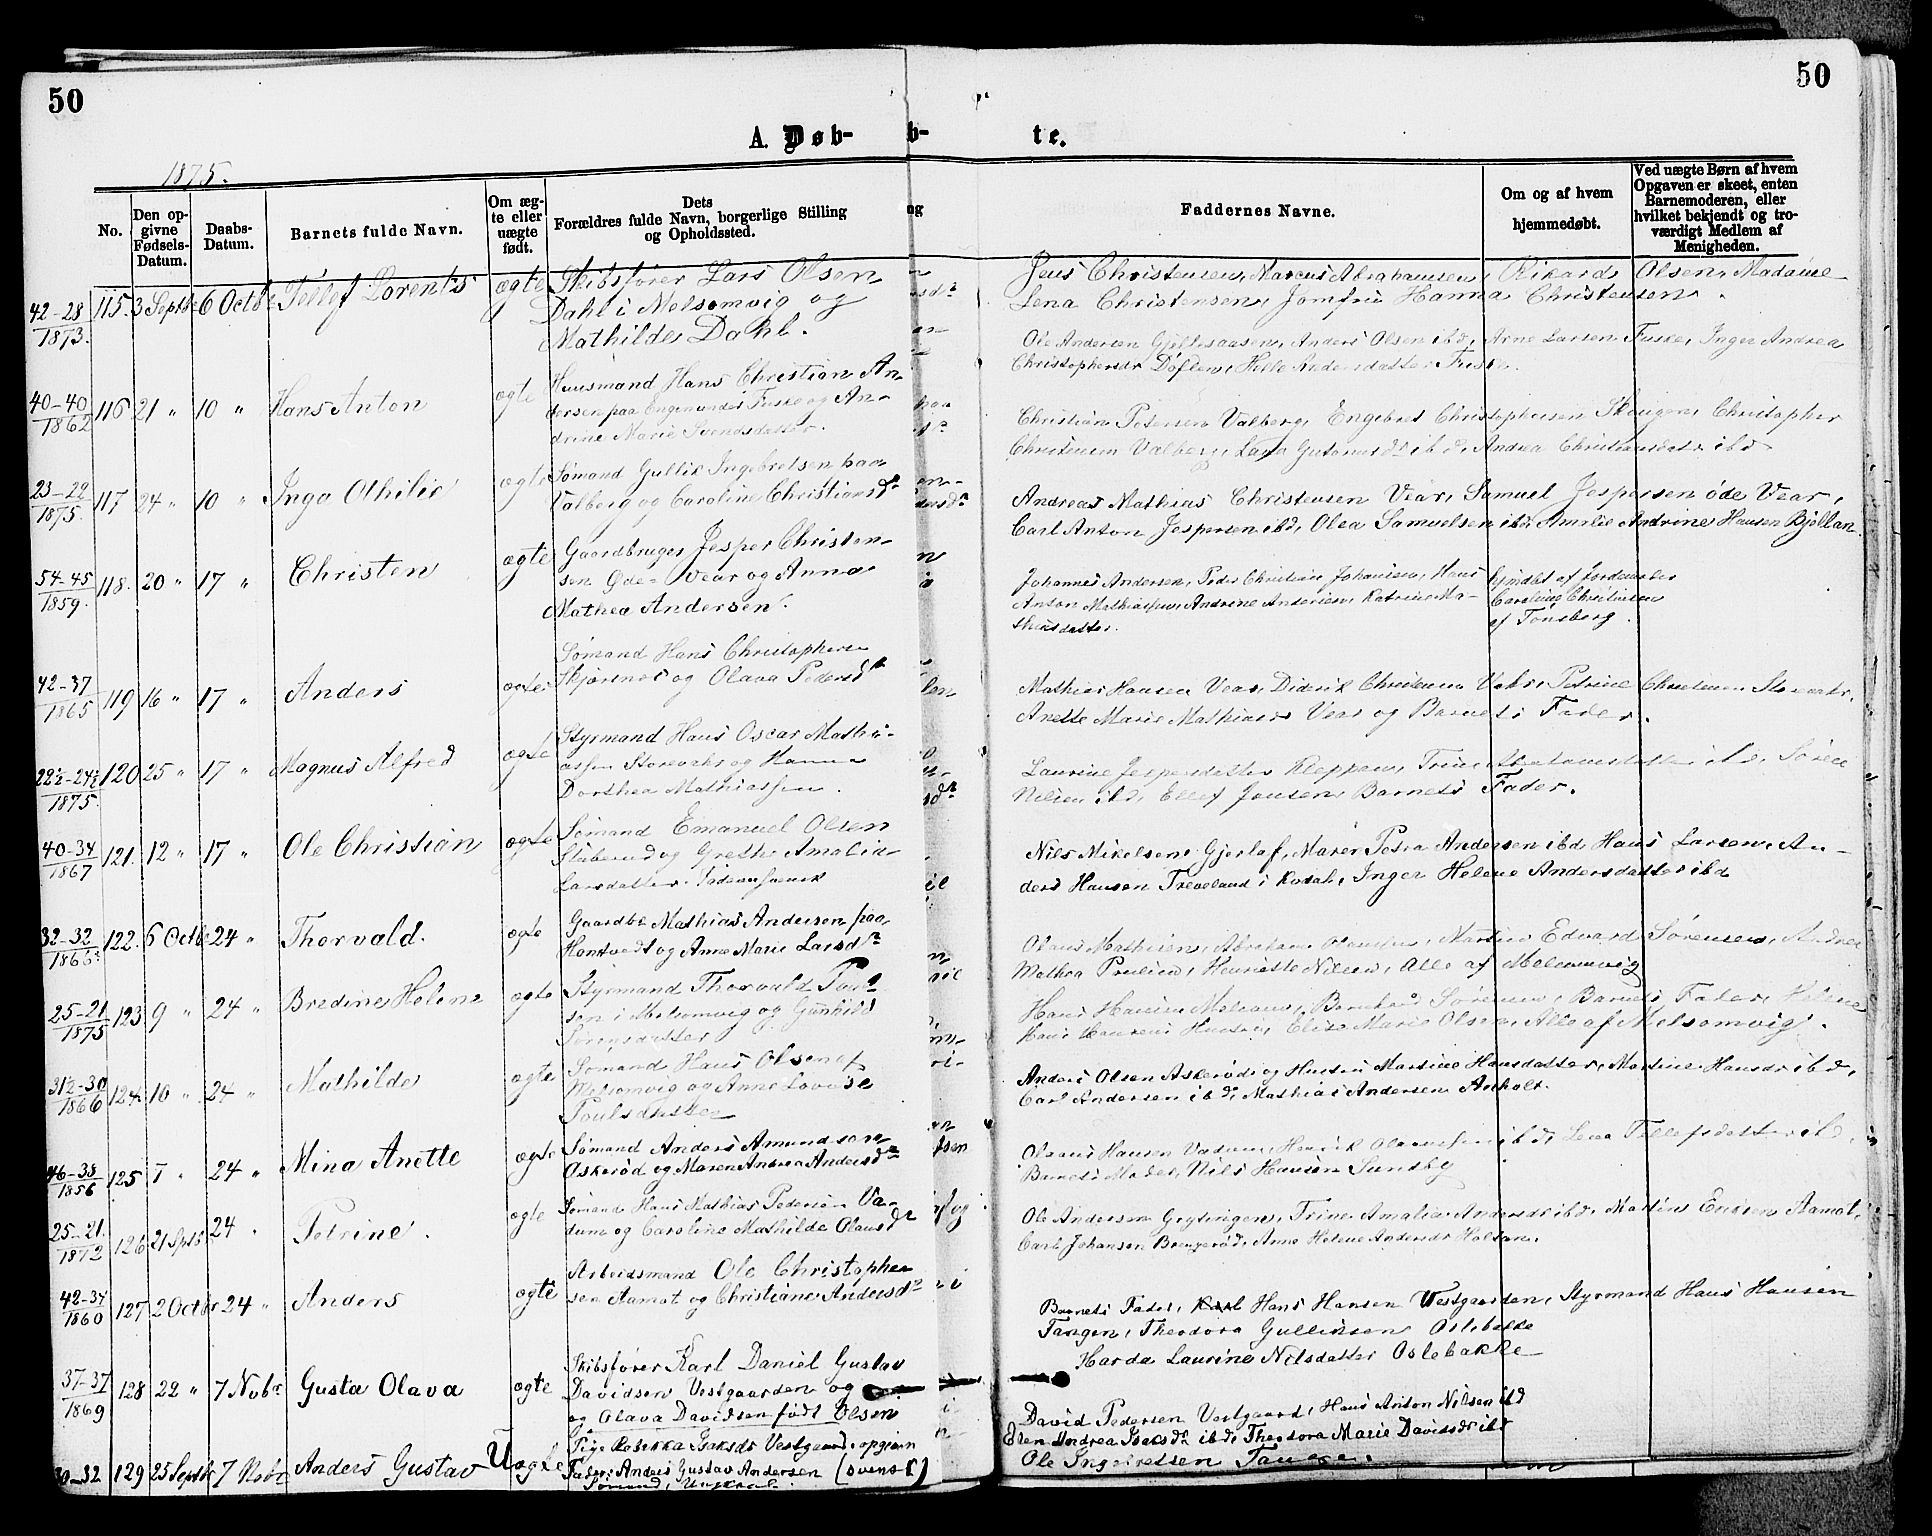 50
50
A. Døb-
b-
te.
1875.
No.
Den op-
givne
Fødsels-
Datum.
Daabs-
Datum.
Barnets fulde Navn.
Om æg-
te eller
uægte
født.
Dets
Forældres fulde Navn, borgerlige Stilling
og Opholdssted.
og
Faddernes Navne.
Om og af hvem
hjemmedøbt.
Ved uægte Børn af hvem
Opgaven er skeet, enten
Barnemoderen, eller
hvilket bekjendt og tro-
værdigt Medlem af
Menigheden.
42-28
1873.
115. 3 Septbr 6 Octbr Tellef Lorents ægte Skibsfører Lars Olsen
Dahl i Melsomvig og
Mathilde Dahl.
Jens Christensen, Marcus Abrahamsen, Rikard Olsen, Madame
Lena Christensen, Jomfru Hanna Christensen.
40-40
1862
116 21 " 10 " Hans Anton ægte Huusmand Hans Christian An-
dersen paa Engen under Fuske og An-
drine Marie Svendsdatter.
Ole Andersen Gjellesaasen, Anders Olsen ibd, Arne Larsen Fuske, Inger Andrea
Christophersdr
23-22
1875.
117 24 " 10 " Inga Othilie ægte Sømand Gullik Ingebretsen paa
Valberg og Caroline Christiansdr
Christian Petersen Valberg, Engebret Christophersen Skougen, Christopher
Christensen Valberg, ibd, Andrea Christiansdatr ibd
54-45
1859.
118. 20 " 17 " Christen ægte Gaardbruger Jesper Christen-
sen Øde-Vear og Anna
Mathea Andersen.
Andreas Mathias Christensen Vear, Samuel Jespersen øde Vear,
Carl Anton Jespersen ibd, Olea Samuelsen ibd, Amilie Andrine Hansen Bjelland
42-37
1865
119 16 " 17 " Anders ægte Sømand Hans Christophersen
Skjærsnes og Olava Pedersdr
Johannes Andersen, Peder Christian Johansen, Hans
Anton Mathiassen, Andrine Andersen, Katrine Ma-
thiasdatter.
af Jordemoder
Caroline Christensen
af Tønsberg.
22½-24½
1875.
120 25 " 17 " Magnus Alfred ægte Styrmand Hans Oscar Mathi-
assen Storevahr og Hanna
Dorthea Mathiassen.
Mathias Hansen Vear, Diderik Christensen Vahr, Petrine Christensen Storevahr,
Anette Marie Mathiasdr Vear og Barnets Fader.
40-34
1867
121. 12 " 17 " Ole Christian ægte Sømand Emanuel Olsen
Stuberud og Grethe Amalia
Larsdatter.
Laurine Jespersdatter Kleppan, Trine ibd, Søren
Nilsen ibd, Ellef Jensen, Barnets Fader.
32-32
1866
122. 6 Octbr 24 " Thorvald. ægte Gaardbr Mathias Andersen paa
Hontvedt og Anne Marie Larsdr
Nils Mikelsen Gjerløf, Maren Petra Andersen ibd, Hans Larsen, An-
ders Hansen Treveland i Kodal, Inger Helene Andersdatter ibd
25-21
1875
123 9 " 24 " Bredine Helene ægte Styrmand Thorvald Paul-
sen i Melsomvig og Gunhild
Sørensdatter
Olaus Mathisen, Abraham Olausen, Martin Edvard Sørensen, Andrea
Mathea Paulsen, Henriette Nilsen, Alle af Melsomvig
31½-30
1866
124. 10 " 24 " Mathilde ægte Sømand Hans Olsen af
Melsomvig og Anne Lovise
Poulsdatter
Hans Hansen Melsom, Bernhard Sørensen, Barnets Fader, Helene
Hansen, Elise Marie Olsen, Alle af Melsomvig.
46-38
1856
125 7 " 24 " Mina Anette ægte Sømand Anders Amundsen
Oskerød og Maren Andrea Andersdr
Anders Olsen Askerød og Hustru Martine Hansdatter, Martine Hansdr ibd,
Carl Andersen ibd, Mathias Andersen Anholt.
25-21.
1872
126 21 Sptb 24 " Petrine. ægte Sømand Hans Mathias Pedersen Va-
dum og Caroline Mathilde Olausdr
Olaus Hansen Vadum, Henrik Olaussen ibd, Lena Tellefsdatter ibd,
Barnets Moder, Nils Hansen Sundby
42-34
1860
127 2 Octbr 24 " Anders ægte Arbeidsmand Ole Christopher-
sen Aamot og Christiane Andersdr
Ole Andersen Grytingen, Trine Amalia Andersdr ibd, Martin Eriksen Aamot,
Carl Johansen Bruserød, Anne Helene Andersdr
37-37
1869
128 22 " 7 Nobr Gusta Olava ægte Skibsfører Karl Daniel Gustav
Davidsen Vestgaarden og
og Olava Davidsen født Olsen
Barnets Fader, Hans Hansen Vestgaarden, Styrmand Hans Hansen
Tangen, Theodora Gulliksen Oslebakke
Harda Laurine Nilsdatter Oslebakke
30-32
129 25 Septbr 7 Nobr Anders Gustav Uægte Pige Rebekka Isaksdr Vestgaard, opgiven
Fader: Anders Gustav Andersen (svensk)
Sømand, Ungkarl.
David Pedersen Vestgaard, Hans Anton Nilsen ibd
Elen Andrea Isaksdr ibd, Theodora Marie Davidsdr ibd
Ole Ingebretsen Tangen.